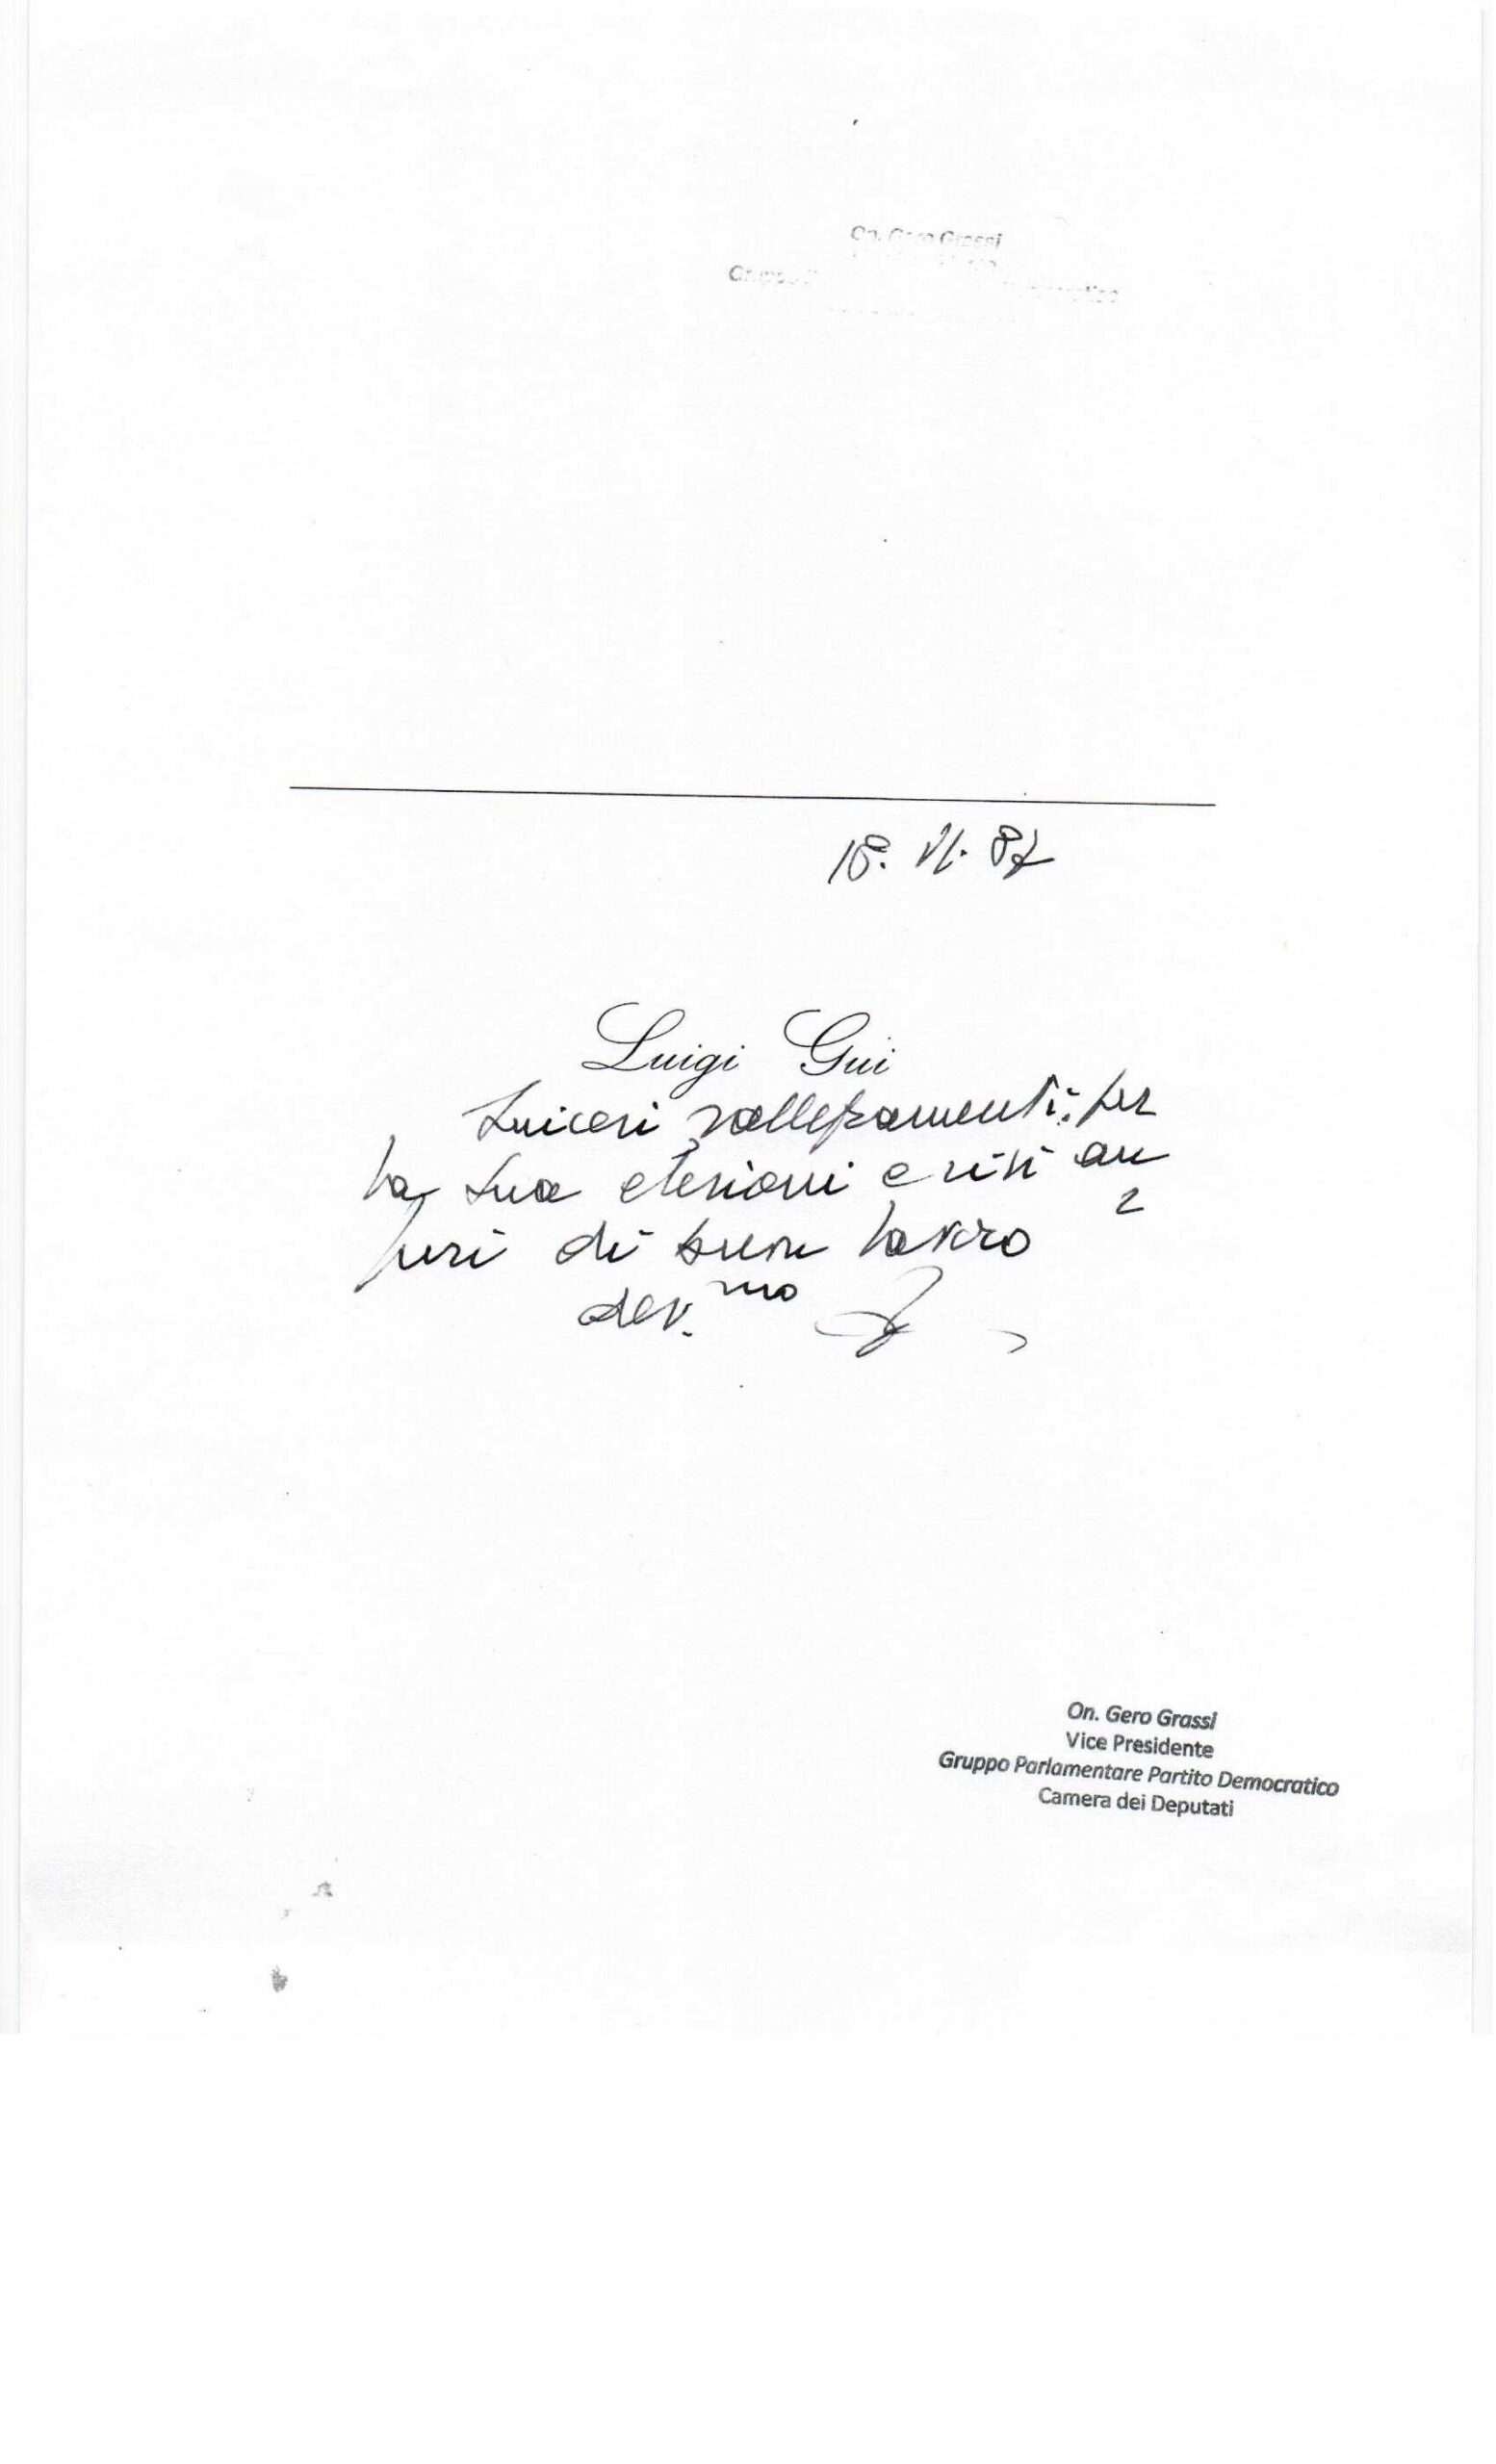 On. Gero Grassi
18. VI. 87
Luigi Gui
Sinceri rallegramenti per
la sua elezione e vivi au
guri di buon lavoro
dev.mo
On. Gero Grassi
Vice Presidente
Gruppo Parlamentare Partito Democratico
Camera dei Deputati